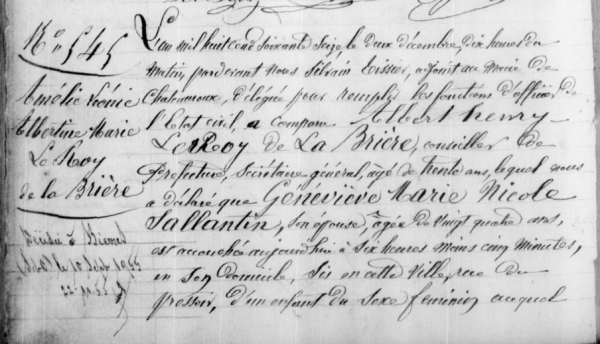 No 545
Amélie Léonie
Albertine Marie
Le Roy
de la Brière
Décédée à Bièvres
le 10 Sept 1955
L'an mil huit cent soixante seize, le deux décembre, dix heures du
matin, pardevant nous Silvain Tissier, adjoint au Maire de
Chateauroux, délégué pour remplir les fonctions d'officier de
l'Etat civil, a comparu Albert Henry
LeRoy de La Brière, conseiller de
Préfecture, Secrétaire général, âgé de trente ans, lequel nous
a déclaré que Géneviève Marie Nicole
Sallantin, son épouse, âgée de vingt quatre ans,
est accouchée aujourd'hui à six heures moins cinq minutes,
en son domicile, sis en cette Ville, rue du
pressoir, d'un enfant du sexe féminin auquel